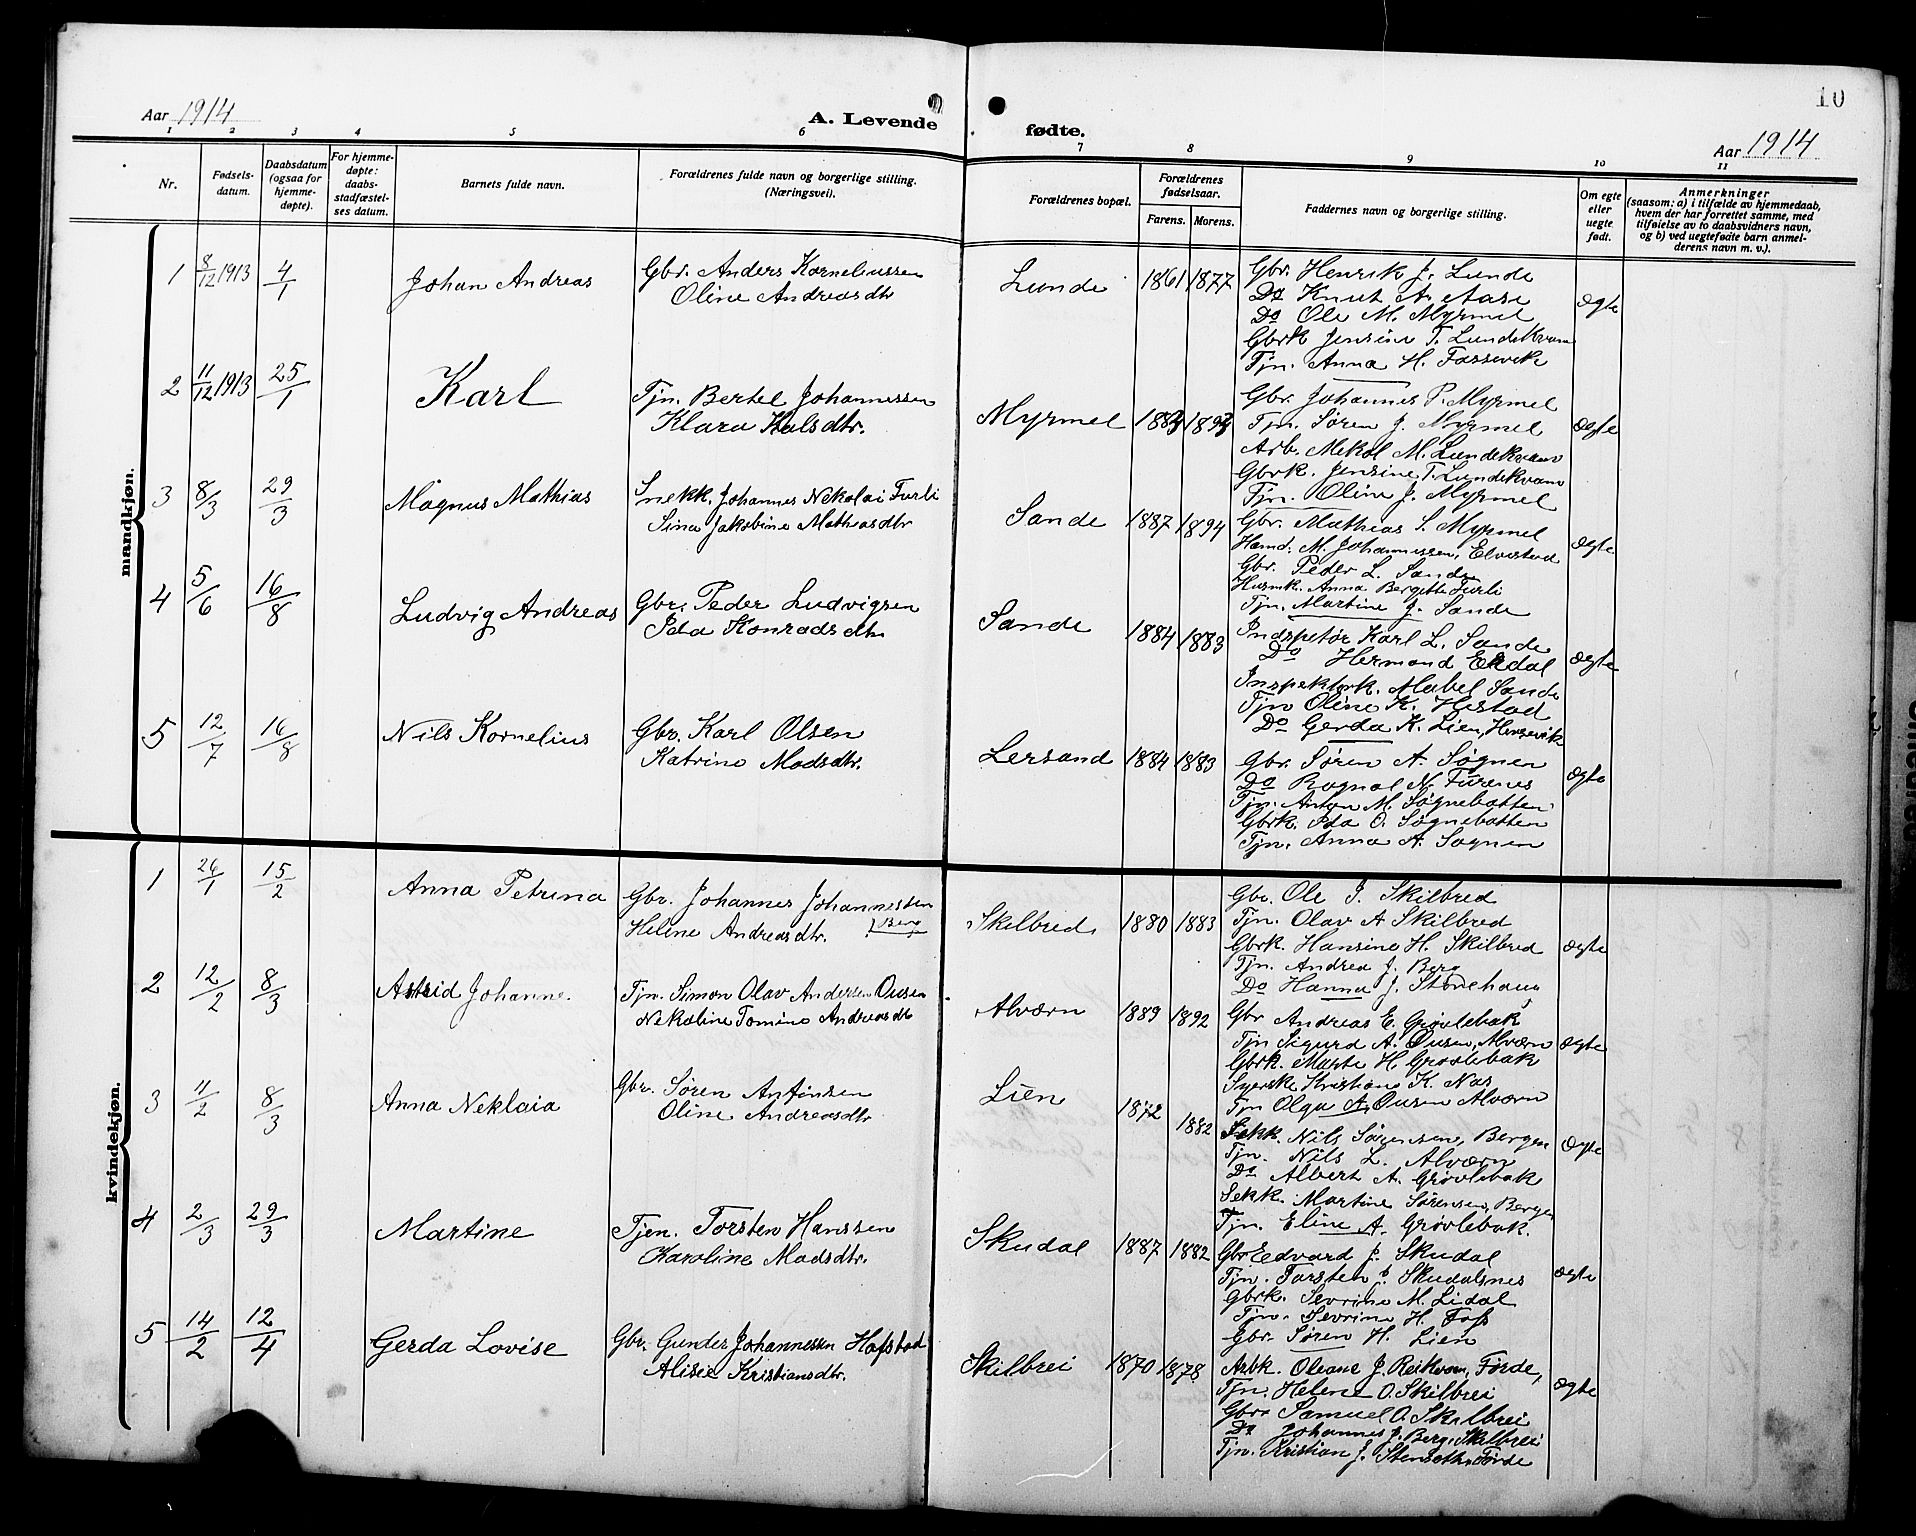 10
Aar 1914
A. Levende fødte.
Aar 1914
1 2 3 4 5 6 7 8 9 10 11
Nr.
Fødsels-
datum.
Daabsdatum
(ogsaa for
hjemme-
døpte).
For hjemme-
døpte:
daabs-
stadfæstel-
ses datum.
Barnets fulde navn.
Forældrenes fulde navn og borgerlige stilling.
(Næringsvei).
Forældrenes bopæl.
Forældrenes
fødselsaar.
Farens. Morens.
Faddernes navn og borgerlige stilling.
Om egte
eller
uegte
født.
Anmerkninger
(saasom: a) i tilfælde av hjemmedaab,
hvem der har forrettet samme, med
tilføielse av to daabsvidners navn,
og b) ved uegtefødte barn anmel-
derens navn m. v.).
mandkjøn.
1 8/12 1913 4/1 Johan Andreas
Gbr. Anders Korneliussen
Oline Andreasdtr
Lunde 1861 1877
Gbr. Henrik J. Lunde
Do Knut A. Aase
Do Ole M. Myrmel
Gbrk Jensine T. Lundekvam
Tjn. Anna H. Fossevik
Ægte
2 11/12 1913 25/1 Karl
Tjn. Bertel Johannessen
Klara Kalsdtr.
Myrmel 1889 1893
Gbr. Johannes P. Myrmel
Tjn. Søren J. Myrmel
Arb. Mekal M. Lundekvam
Gbrk. Jensine T. Lundekvam
Tjn. Oline J. Myrmel
Ægte
3 8/3 29/3 Magnus Mathias
Snekk. Johannes Nekolai Furli
Sina Jakobine Mathiasdtr
Sande 1887 1894
Gbr. Mathias S. Myrmel
Hamd. M. Johannessen, Elvestad
Gbr. Peder L. Sande
Husmk. Anna Bergitte Furli
Tjn. Martine J. Sande
Ægte
4 5/6 16/8 Ludvig Andreas
Gbr. Peder Ludvigsen
Ida Konradsdtr
Sande 1884 1883
Indspetør Karl L. Sande
Do Hermand Ekdal
Inspektørk. Mabel Sande
Tjn Oline K. Hestad
Do Gerda K. Lien, Hersevik
Ægte
5 12/7 16/8 Nils Kornelius
Gbr. Karl Olsen
Katrine Madsdtr.
Lersand 1884 1883
Gbr. Søren A. Søgnen
Do Ragnal N. Furenes
Tjn. Anton M. Søgnebotten
Gbrk. Ida O. Søgnebotten
Tjn. Anna A. Søgnen
Ægte
kvindekjøn.
1 26/1 15/2 Anna Petrina
Gbr. Johannes Johannessen
Helene Andreasdtr. Berg
Skilbred 1880 1883
Gbr. Ole J. Skilbred
Tjn. Olav A Skilbred
Gbrk. Hansine H. Skilbred
Tjn. Andrea J. Berg
Do Hanna J. Storehaug
Ægte
2 12/2 8/3 Astrid Johanne.
Tjn. Simon Olav Andersen Ousen
Nekoline Tomine Andreasdtr
Alværn 1889 1892
Gbr Andreas E. Grøvlebak
Tjn Sigurd A. Ousen, Alværn
Gbrk. Marte H Grøvlebak
Syerske Kristiane K. Nas
Tjn Olga A. Ousen Alværn
Ægte
3 11/2 8/3 Anna Neklaia
Gbr. Søren Antonsen
Oline Andreasdtr
Lien 1872 1882
Sekk. Nils Sørensen, Bergen
Tjn. Nils L. Alværn
Do Albert A. Grøvlebak
Sekk. Martine Sørensen, Bergen
Tjn. Eline A. Grøvlebak.
Ægte
4 2/3 29/3 Martine
Tjen. Torsten Hanssen
Karoline Madsdtr.
Skudal 1887 1882
Gbr Eedvard J. Skudal
Tjn. Torsten J. Skudalsnes
Gbrk. Sevrine M. Lidal
Tjn. Sevrine H. Foss
Gbr. Søren H. Lien
Ægte
5 14/2 12/4 Gerda Lovise
Gbr. Gunder Johannessen Hafstad
Alisie Kristiansdtr.
Skilbrei 1870 1878
Arbk. Oleane J. Reikvam, Førde,
Tjn. Helene O. Skilbrei
Gbr. Samuel O. Skilbrei
Do Johannes J. Berg, Skilbrei
Tjn. Kristian J. Stenseth, Førde
Ægte